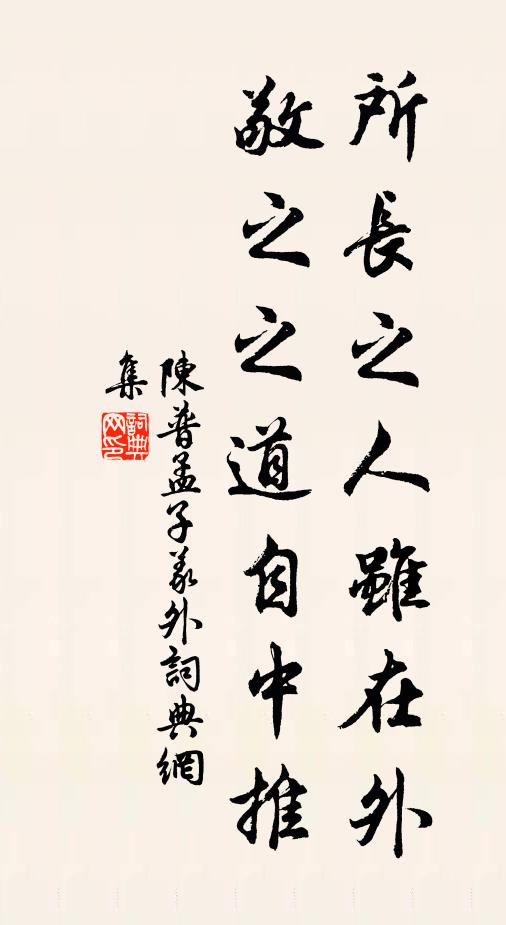 所長之人雖在外
敬之之道自中推
陳普孟子義外詞典網
集
詞典網印